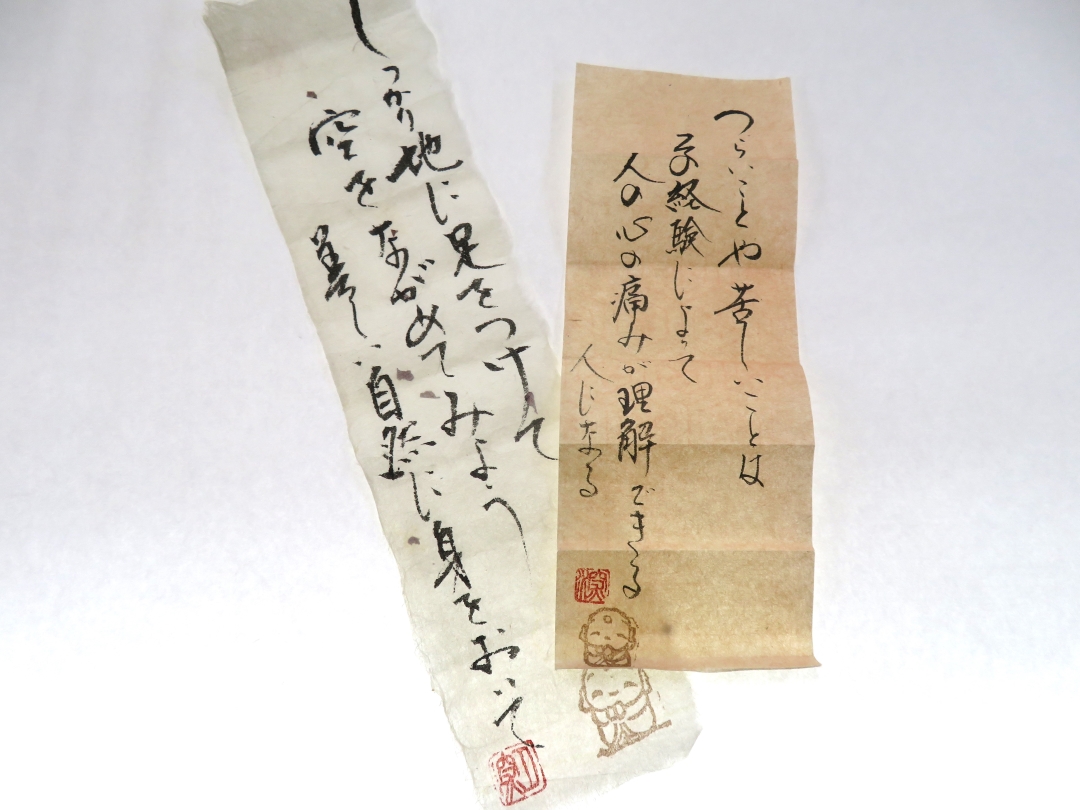 つらいことや苦しいことは
経験によって
人の心の痛みが理解できる
人になる
しっかり地に足をつけて
空をながめてみよう
美しい自然に身をおいて